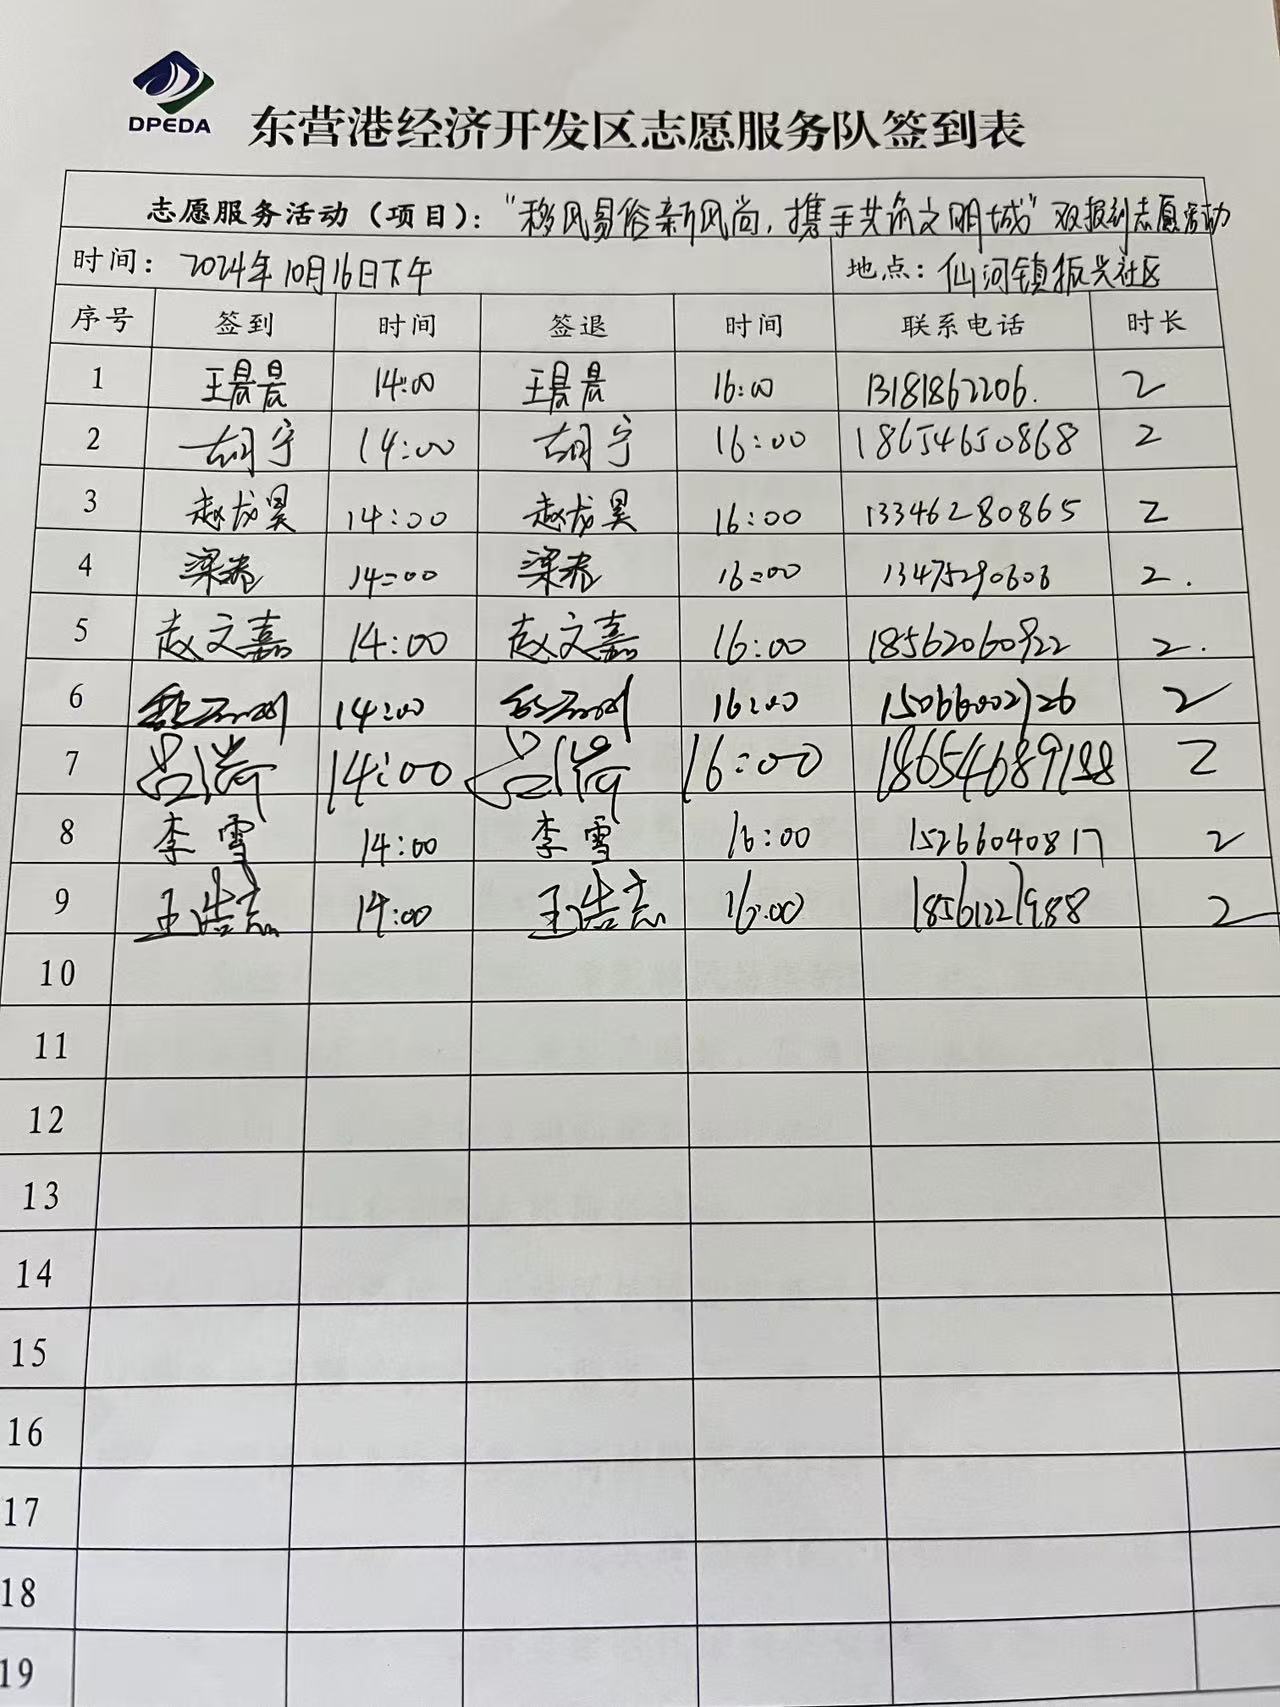 DPEDA
东营港经济开发区志愿服务队签到表
志愿服务活动（项目）："移风易俗新风尚，携手共筑文明城"双报到志愿活动
时间：2024年10月16日下午 地点：仙河镇振兴社区
序号 签到 时间 签退 时间 联系电话 时长
1 王晨晨 14:00 王晨晨 16:00 13181862206. 2
2 胡宁 14:00 胡宁 16:00 18654650868 2
3 赵龙昊 14:00 赵龙昊 16:00 13346280865 2
4 梁 14:00 梁 16:00 13475290606 2.
5 赵文嘉 14:00 赵文嘉 16:00 18562060922 2.
6 14:00 16:00 15066002726 2
7 吕倩 14:00 吕倩 16:00 18654689188 2
8 李雪 14:00 李雪 16:00 15266040817 2
9 王浩志 14:00 王浩志 16:00 18561221988 2
10
11
12
13
14
15
16
17
18
19